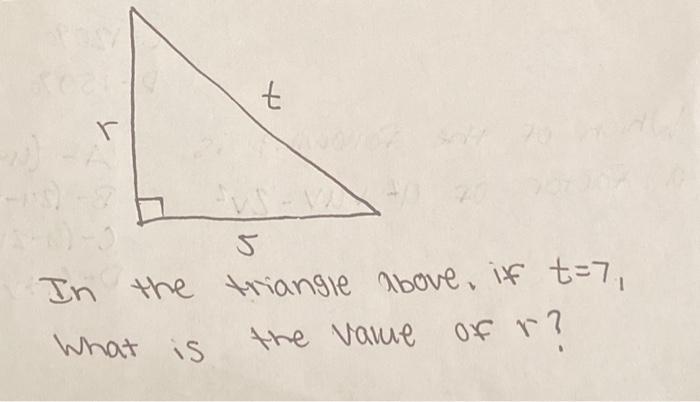 t
r
5
In the triangle above, if t=7,
What is the value of r?